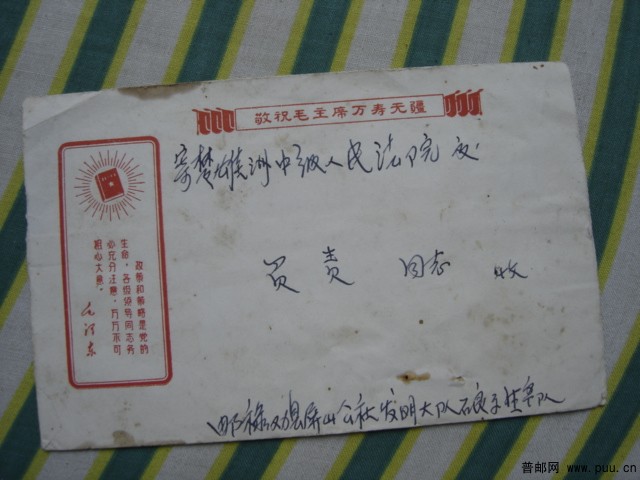 敬祝毛主席万寿无疆
寄楚雄州中级人民法院
负责 同志 收
政策和策略是党的
生命，各级领导同志务
必充分注意，万万不可
粗心大意。
毛泽东
禄劝县屏山公社发明大队
普邮网 www.puu.cn